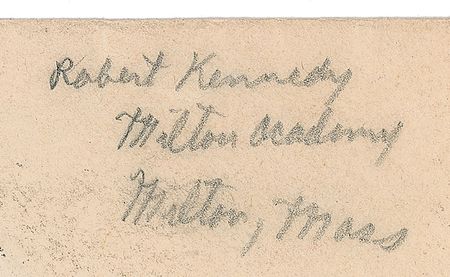 Robert Kennedy
Milton Academy
Milton, Mass